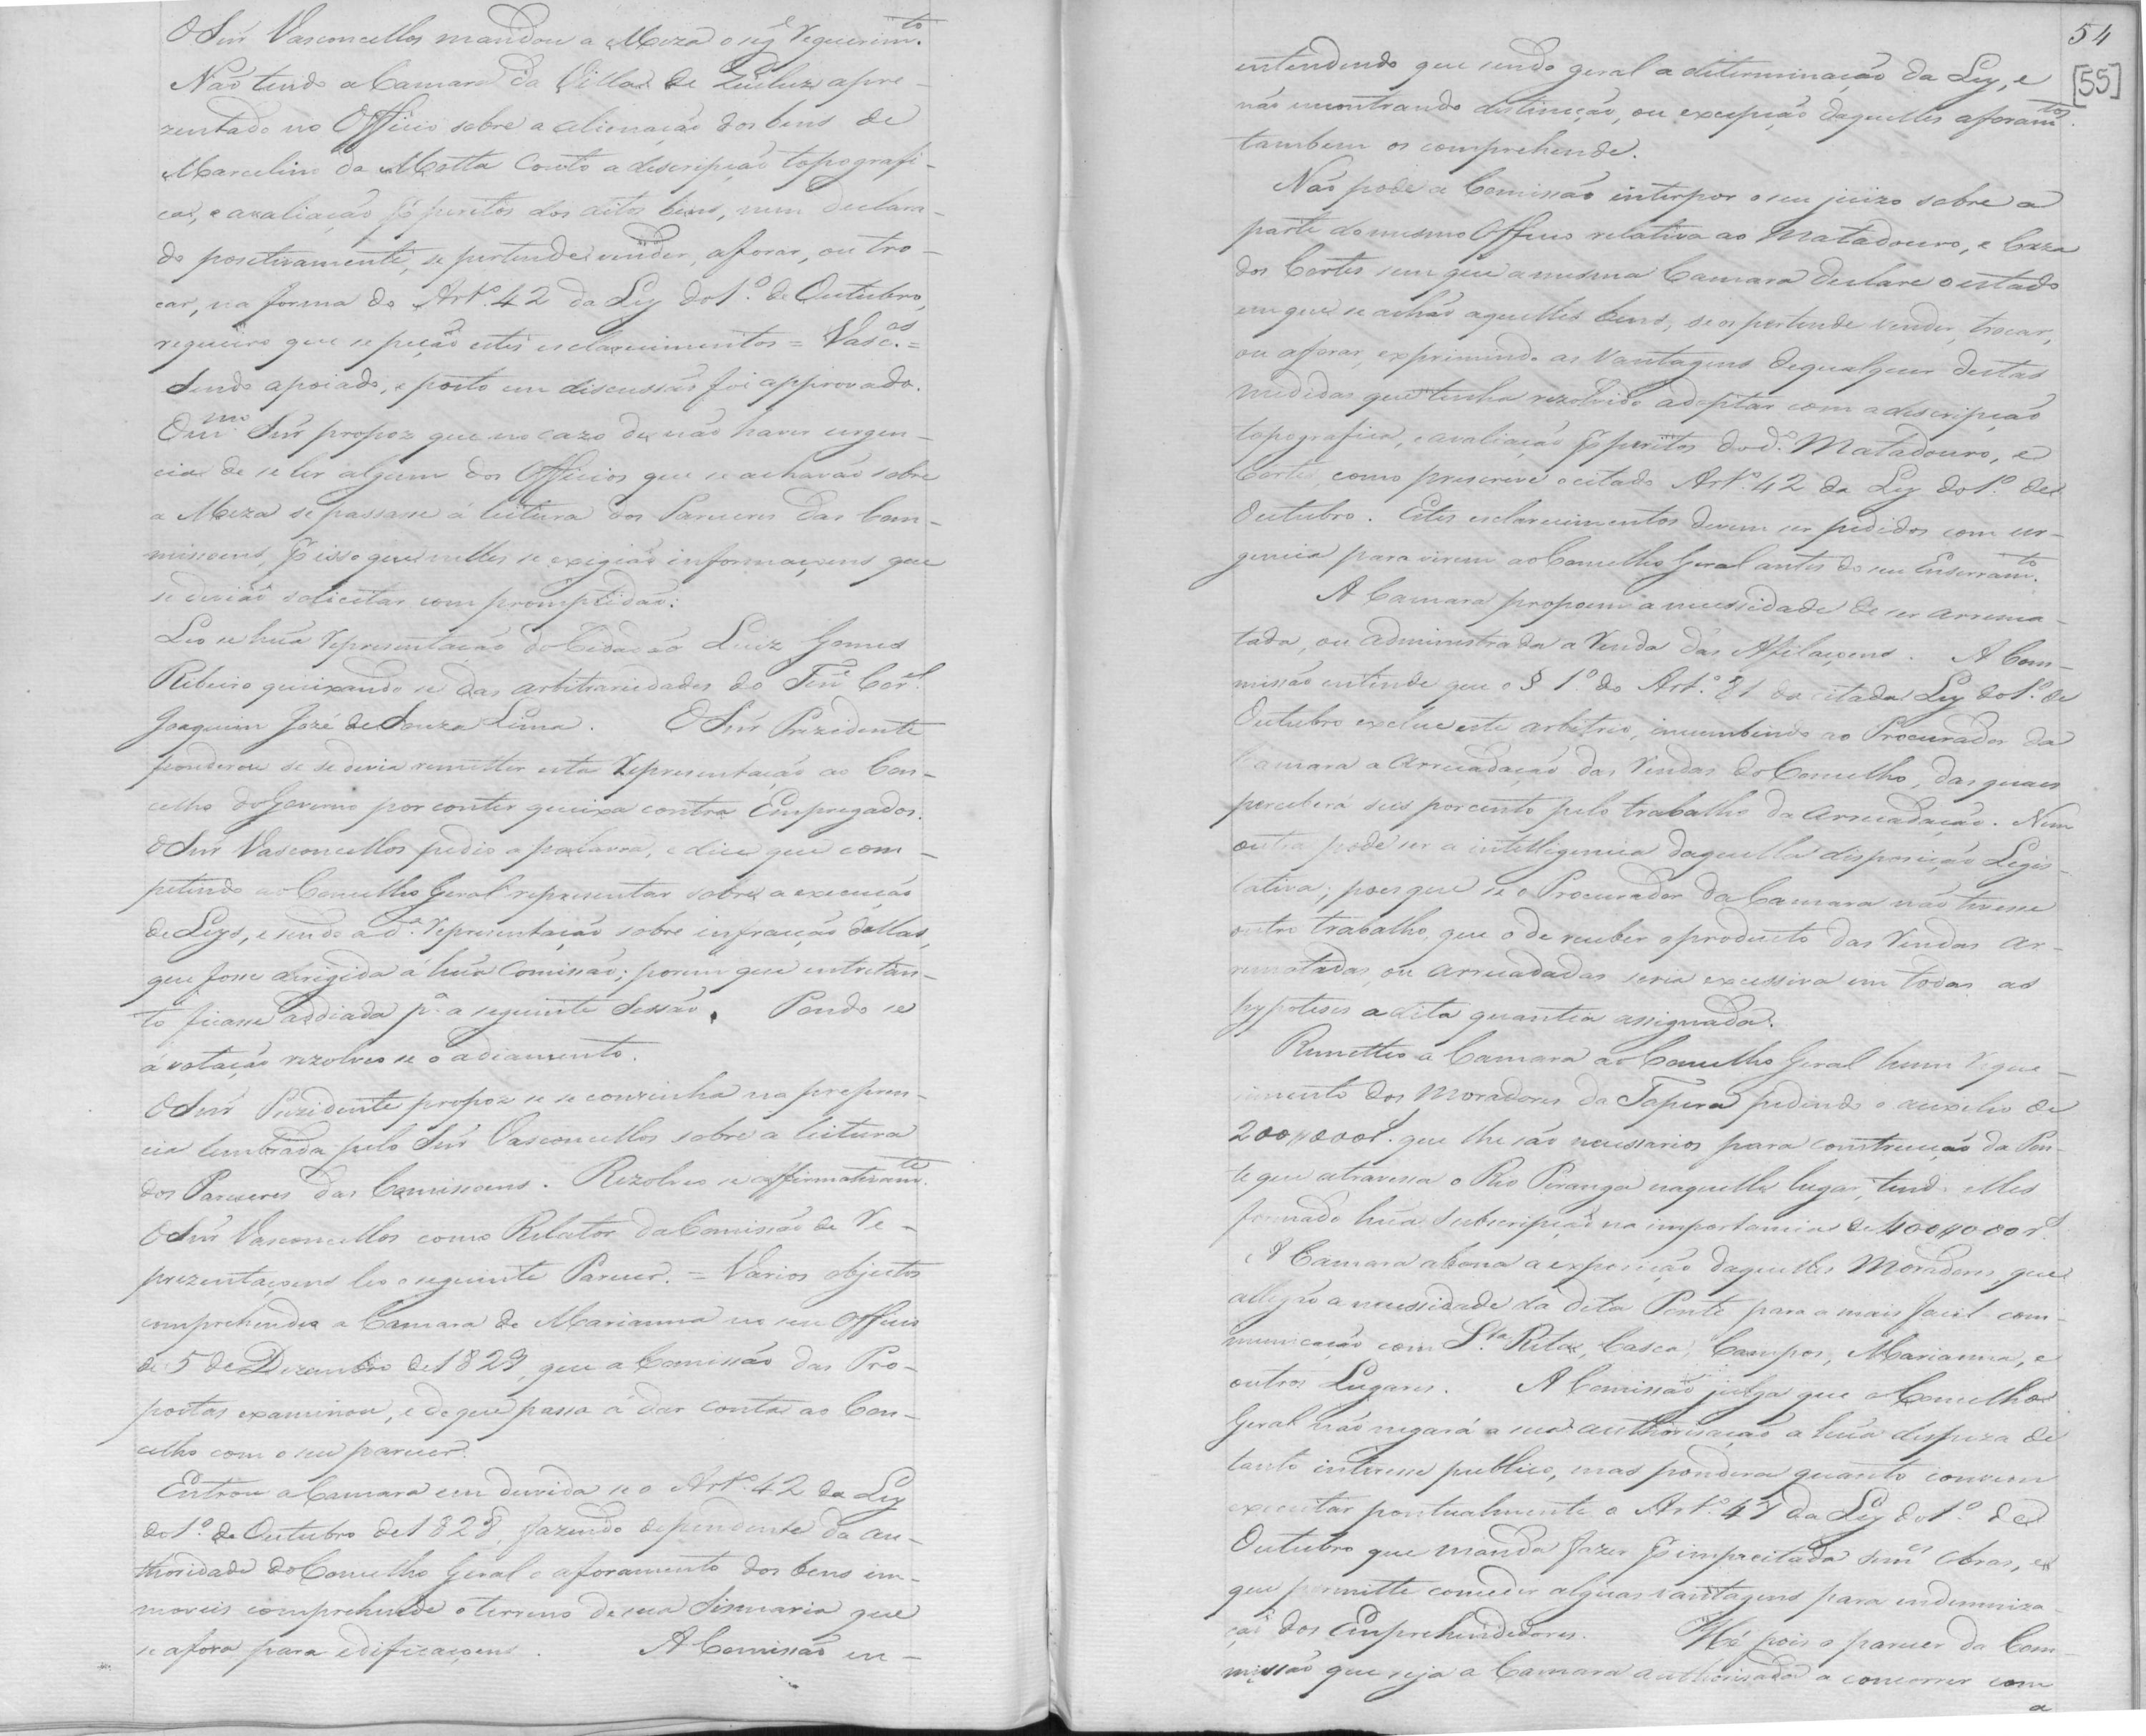 O Snr̃ Vasconcellos mandou a Meza o seg.e Requerim.to
Não tendo a Camara da Villa de Queluz apre-
zentado no Officio sobre a alienação dos bens de
Marcelino da Motta Couto a descripção topografi-
ca, e avaliação p.r peritos dos ditos bens, nem declara-
do positivamente, se pertende vender, aforar, ou tro-
car, na forma do Art.º 42 da Ley do 1.º de Outubro,
requeiro que se peção estes esclarecimentos = Vasc.os =
Sendo apoiado, e posto em discussão foi approvado.
O m.mo Snr̃ propoz que no cazo de não haver urgen-
cia de se ler algum dos Officios que se achavão sobre
a Meza se passasse á leitura dos Pareceres das Com-
missoens, p.r isso que nelles se exigião informaçoens que
se devião solicitar com promptidão.
Leo se hũa Representação do Cidadão Luiz Gomes
Ribeiro queixando se das arbitrariedades do Ten.e Cor.el
Joaquim José de Souza Lima. O Snr̃ Prezidente
ponderou se se devia remetter esta Representação ao Con-
celho do Governo por conter queixa contra Empregados.
O Snr̃ Vasconcellos pedio a palavra, e dice que com-
petindo ao Concelho Geral representar sobre a execução
de Leys, e sendo a d.a Representação sobre infracção dellas,
que fosse dirigida á hũa Comissão; porem que entretan-
to ficasse addiada p.a a seguinte Sessão. Pondo se
á votação rezolveo se o adiamento.
O Snr̃ Prezidente propoz se se convinha na preferen-
cia lembrada pelo Snr̃ Vasconcellos sobre a leitura
dos Pareceres das Comissoens. Rezolveo se affirmativam.te
O Snr̃ Vasconcellos como Relator da Comissão de Re-
prezentaçoens leo o seguinte Parecer. = Varios objectos
comprehendeo a Camara de Marianna no seu Officio
de 5 de Dezembro de 1829, que a Comissão das Pro-
postas examinou, e de que passa á dar conta ao Con-
celho com o seu parecer.
Entrou a Camara em duvida se o Art.º 42 da Ley
do 1.º de Outubro de 1828, fazendo dependente da au-
thoridade do Concelho Geral o aforamento dos bens im-
moveis comprehende o terreno de sua Sismaria que
se afora para edificaçoens. A Comissão en-
54
[55]
entendendo que sendo geral a determinação da Ley, e
não encontrando distincção, ou excepção daquelles aforam.tos
tambem os comprehende.
Não pode a Comissão interpor o seu juizo sobre a
parte do mesmo Officio relativa ao Matadouro, e Caza
dos Cortes sem que a mesma Camara declare o estado
em que se achão aquelles bens, se os pertende vender, trocar,
ou aforar, exprimindo as Vantagens de qualquer destas
medidas que tenha rezolvido adoptar com a descripção
topografica, e avaliação p.r peritos do d.o Matadouro, e
Corte, como prescreve o citado Art.º 42 da Ley do 1.º de
Outubro. Estes esclarecimentos devem ser pedidos com ur-
gencia para virem ao Concelho Geral antes do seu Enserram.to.
A Camara propoem a necessidade de ser arrema-
tada, ou administrada a Renda das Afilaçoens. A Com-
missão entende que o § 1.º do Art.º 81 da citada Ley do 1.º de
Outubro exclue este arbitrio, incumbindo ao Procurador da
Camara a arrecadação das Rendas do Concelho, das quaes
perceberá seis por cento pelo trabalho da arrecadação. Nem
outra pode ser a intelligencia daquella disposição Legis-
lativa; pois que se o Procurador da Camara não tivesse
outro trabalho, que o de receber o producto das Rendas ar-
rematadas, ou arrecadadas seria excessiva em todas as
hypoteses a dita quantia assignada.
Remetteo a Camara ao Concelho Geral hum reque-
rimento dos Moradores da Tapera pedindo o auxilio de
200//000r.s que lhe são necessarios para construcção da Pon-
te que atravessa o Rio Piranga naquelle lugar, tendo elles
formado hũa subscripção na importancia de 400//000r.s
A Camara abona a exposição daquelles Moradores, que
allegão a necessidade da dita Ponte para a mais facil com-
municação com S.ta Rita, Casca, Campos, Marianna, e
outros Lugares. A Comissão julga que o Concelho
Geral não negará a sua authorisação a hũa despeza de
tanto interesse publico, mas pondera quanto convem
executar pontualmente o Art.º 47 da Ley do 1.º de
Outubro que manda fazer p.r impreitada sem.es obras, e
que permitte conceder algũas vantagens para endemniza-
ção dos Emprehendedores. Hé pois o parecer da Com-
missão que seja a Camara authorisada a concorrer com
a